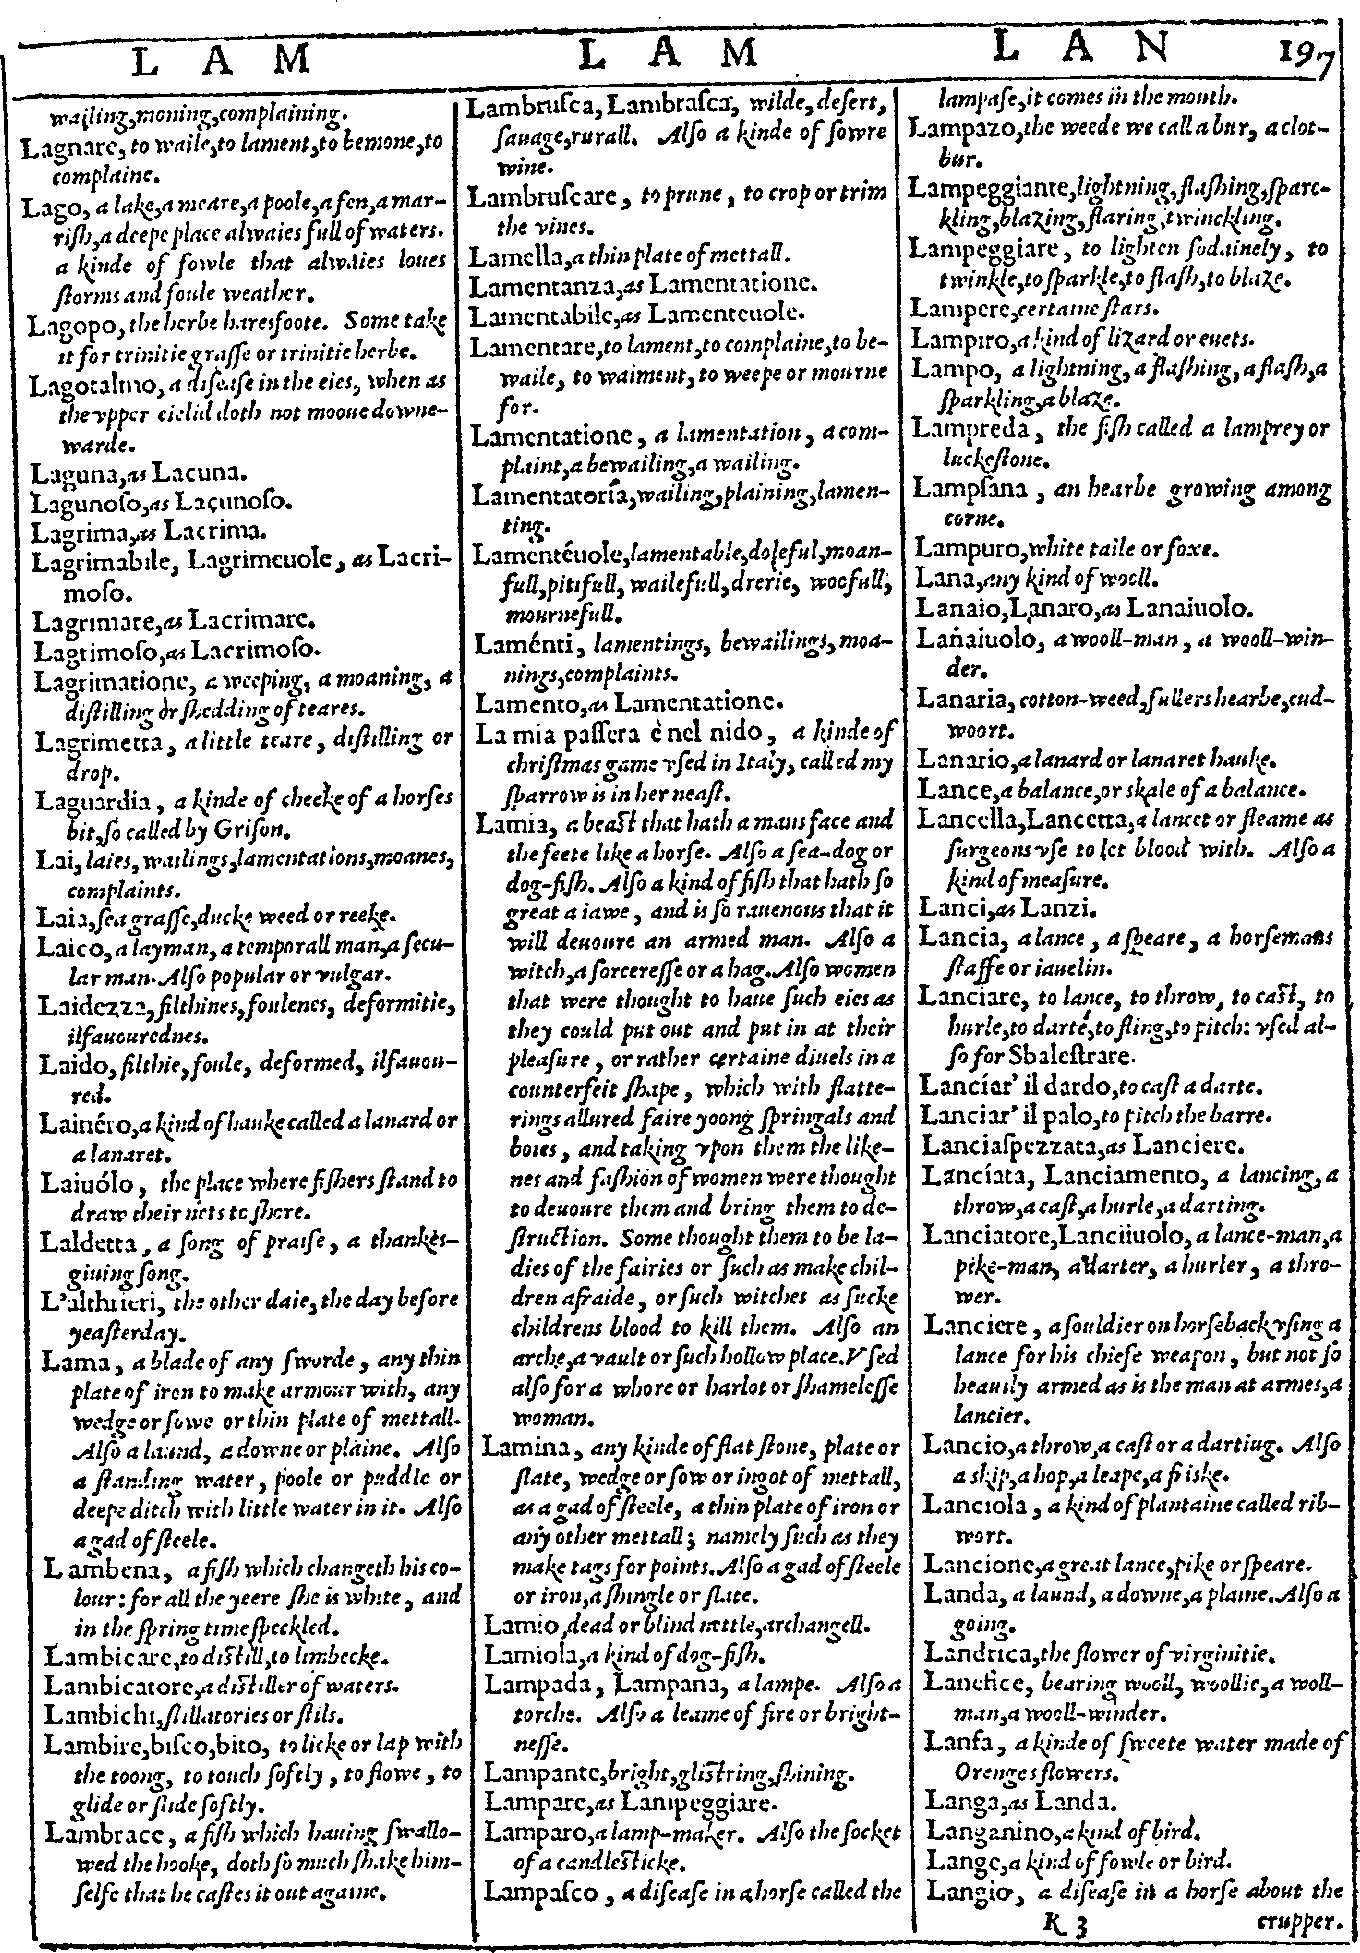 LAM LAM LAN 197
wailing,moning,complaining.
Lagnare, to waile,to lament,to bemone,to
complaine.
Lago, a lake,a meare,a poole,a fen,a mar-
rish,a deepe place alwaies full of waters.
a kinde of fowle that alwaies loues
stormes and foule weather.
Lagopo, the herbe haresfoote. Some take
it for trinitie grasse or trinitie herbe.
Lagotalmo, a disease in the eies, when as
the vpper eielid doth not mooue downe-
warde.
Laguna,as Lacuna.
Lagunoso,as Lacunoso.
Lagrima,as Lacrima.
Lagrimabile, Lagrimeuole, as Lacri-
moso.
Lagrimare,as Lacrimare.
Lagrimoso,as Lacrimoso.
Lagrimatione, a weeping, a moaning, a
distilling or shedding of teares.
Lagrimetta, a little teare, distilling or
drop.
Laguardia, a kinde of cheeke of a horses
bit,so called by Grison.
Lai, laies, wailings,lamentations,moanes,
complaints.
Laia,sea grasse,ducke weed or reeke.
Laico, a layman, a temporall man,a secu-
lar man. Also popular or vulgar.
Laidezza,filthines,foulenes, deformitie,
ilfauourednes.
Laido, filthie,foule, deformed, ilfauou-
red.
Lainéro,a kind of hauke called a lanard or
a lanaret.
Laiuólo, the place where fishers stand to
draw their nets to shore.
Laldetta, a song of praise, a thankes-
giuing song.
L'althrieri, the other daie, the day before
yeasterday.
Lama, a blade of any sworde, any thin
plate of iron to make armour with, any
wedge or sowe or thin plate of mettall.
Also a laund, a downe or plaine. Also
a standing water, poole or puddle or
deepe ditch with little water in it. Also
a gad of steele.
Lambena, a fish which changeth his co-
lour: for all the yeere she is white, and
in the spring time speckled.
Lambicare,to distill,to limbecke.
Lambicatore,a distiller of waters.
Lambichi,stillatories or stils.
Lambire,bisco,bito, to licke or lap with
the toong, to touch softly, to flowe, to
glide or slide softly.
Lambrace, a fish which hauing swallo-
wed the hooke, doth so much shake him-
selfe that he castes it out againe.
Lambrusca, Lambrasca, wilde, desert,
sauage,rurall. Also a kinde of sowre
wine.
Lambruscare, to prune, to crop or trim
the vines.
Lamella,a thin plate of mettall.
Lamentanza,as Lamentatione.
Lamentabile,as Lamenteuole.
Lamentare,to lament,to complaine,to be-
waile, to waiment, to weepe or mourne
for.
Lamentatione, a lamentation, a com-
plaint,a bewailing,a wailing.
Lamentatoría,wailing,plaining,lamen-
ting.
Lamentéuole,lamentable,doleful,moan-
full,pitifull, wailefull,drerie, woefull,
mournefull.
Laménti, lamentings, bewailings, moa-
nings,complaints.
Lamento,as Lamentatione.
La mia passera è nel nido, a kinde of
christmas game vsed in Italy, called my
sparrow is in her neast.
Lamia, a beast that hath a mans face and
the feete like a horse. Also a sea-dog or
dog-fish. Also a kind of fish that hath so
great a iawe, and is so rauenous that it
will deuoure an armed man. Also a
witch,a sorceresse or a hag. Also women
that were thought to haue such eies as
they could put out and put in at their
pleasure, or rather certaine diuels in a
counterfeit shape, which with flatte-
rings allured faire yoong springals and
boies, and taking vpon them the like-
nes and fashion of women were thought
to deuoure them and bring them to de-
struction. Some thought them to be la-
dies of the fairies or such as make chil-
dren afraide, or such witches as sucke
childrens blood to kill them. Also an
arche,a vault or such hollow place. Vsed
also for a whore or harlot or shamelesse
woman.
Lamina, any kinde of flat stone, plate or
slate, wedge or sow or ingot of mettall,
as a gad of steele, a thin plate of iron or
any other mettall; namely such as they
make tags for points. Also a gad of steele
or iron,a shingle or slate.
Lamio,dead or blind nettle,archangell.
Lamiola,a kind of dog-fish.
Lampada, Lampana, a lampe. Also a
torche. Also a leame of fire or bright-
nesse.
Lampante,bright,glistring,shining.
Lampare,as Lampeggiare.
Lamparo,a lamp-maker. Also the socket
of a candlesticke.
Lampasco, a disease in a horse called the
lampase,it comes in the mouth.
Lampazo,the weede we call a bur, a clot-
bur.
Lampeggiante,lightning,flashing,spare-
kling,blazing,flaring,twinckling.
Lampeggiare, to lighten sodainely, to
twinkle,to sparkle,to flash,to blaze.
Lampere,certaine stars.
Lampiro,a kind of lizard or euets.
Lampo, a lightning, a flashing, a flash,a
sparkling,a blaze.
Lampreda, the fish called a lamprey or
luckestone.
Lampsana, an hearbe growing among
corne.
Lampuro,white taile or foxe.
Lana,any kind of wooll.
Lanaio,Lanaro,as Lanaiuolo.
Lanaiuolo, a wooll-man, a wooll-win-
der.
Lanaria,cotton-weed,fullers hearbe,cud-
woort.
Lanario,a lanard or lanaret hauke.
Lance,a balance,or skale of a balance.
Lancella,Lancetta,a lancet or fleame as
surgeons vse to let blood with. Also a
kind of measure.
Lanci,as Lanzi.
Lancia, a lance, a speare, a horsemans
staffe or iauelin.
Lanciare, to lance, to throw, to cast, to
hurle,to darte,to fling,to pitch: vsed al-
so for Sbalestrare.
Lancíar' il dardo,to cast a darte.
Lanciar' il palo,to pitch the barre.
Lanciaspezzata,as Lanciere.
Lancíata, Lanciamento, a lancing, a
throw,a cast,a hurle,a darting.
Lanciatore,Lanciiuolo, a lance-man,a
pike-man, a darter, a hurler, a thro-
wer.
Lanciere, a souldier on horseback vsing a
lance for his chiefe weapon, but not so
heauily armed as is the man at armes,a
lancier.
Lancio,a throw,a cast or a darting. Also
a skip,a hop,a leape,a friske.
Lanciola, a kind of plantaine called rib-
wort.
Lancione,a great lance,pike or speare.
Landa, a laund, a downe,a plaine. Also a
going.
Landrica,the flower of virginitie.
Lanefice, bearing wooll, woollie,a woll-
man,a wooll-winder.
Lanfa, a kinde of sweete water made of
Orenges flowers.
Langa,as Landa.
Langanino,a kind of bird.
Lange,a kind of fowle or bird.
Langio, a disease in a horse about the
K 3 crupper.